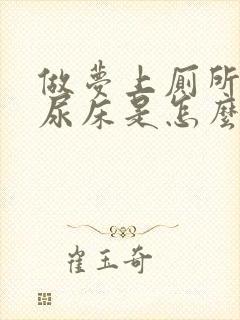 做夢上廁所
尿床是怎麼
崔玉奇